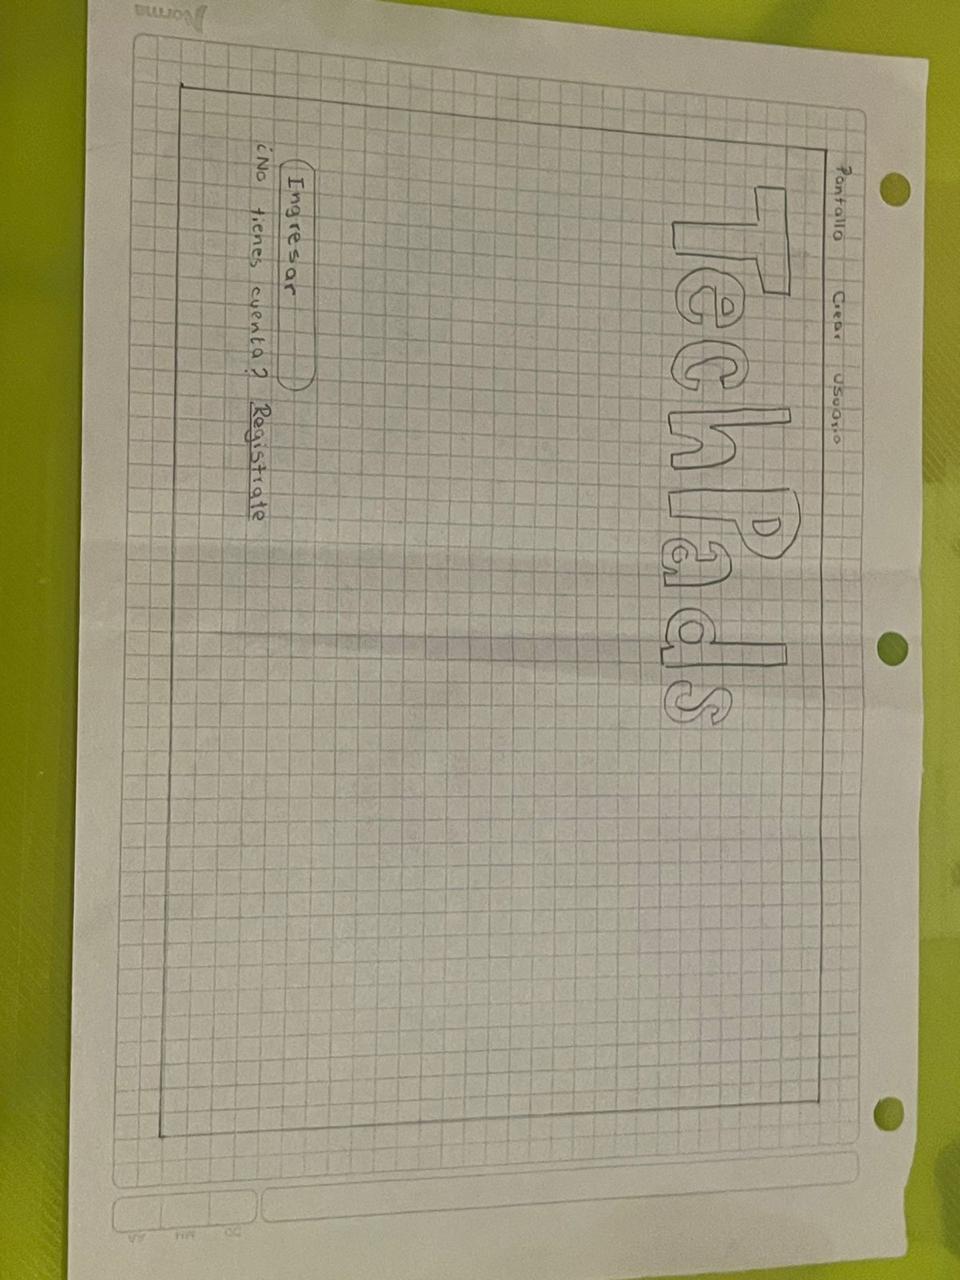 Pantalla Crear usuario
TechPads
Ingresar
¿No tienes cuenta? Registrate
Norma
DD MM AA